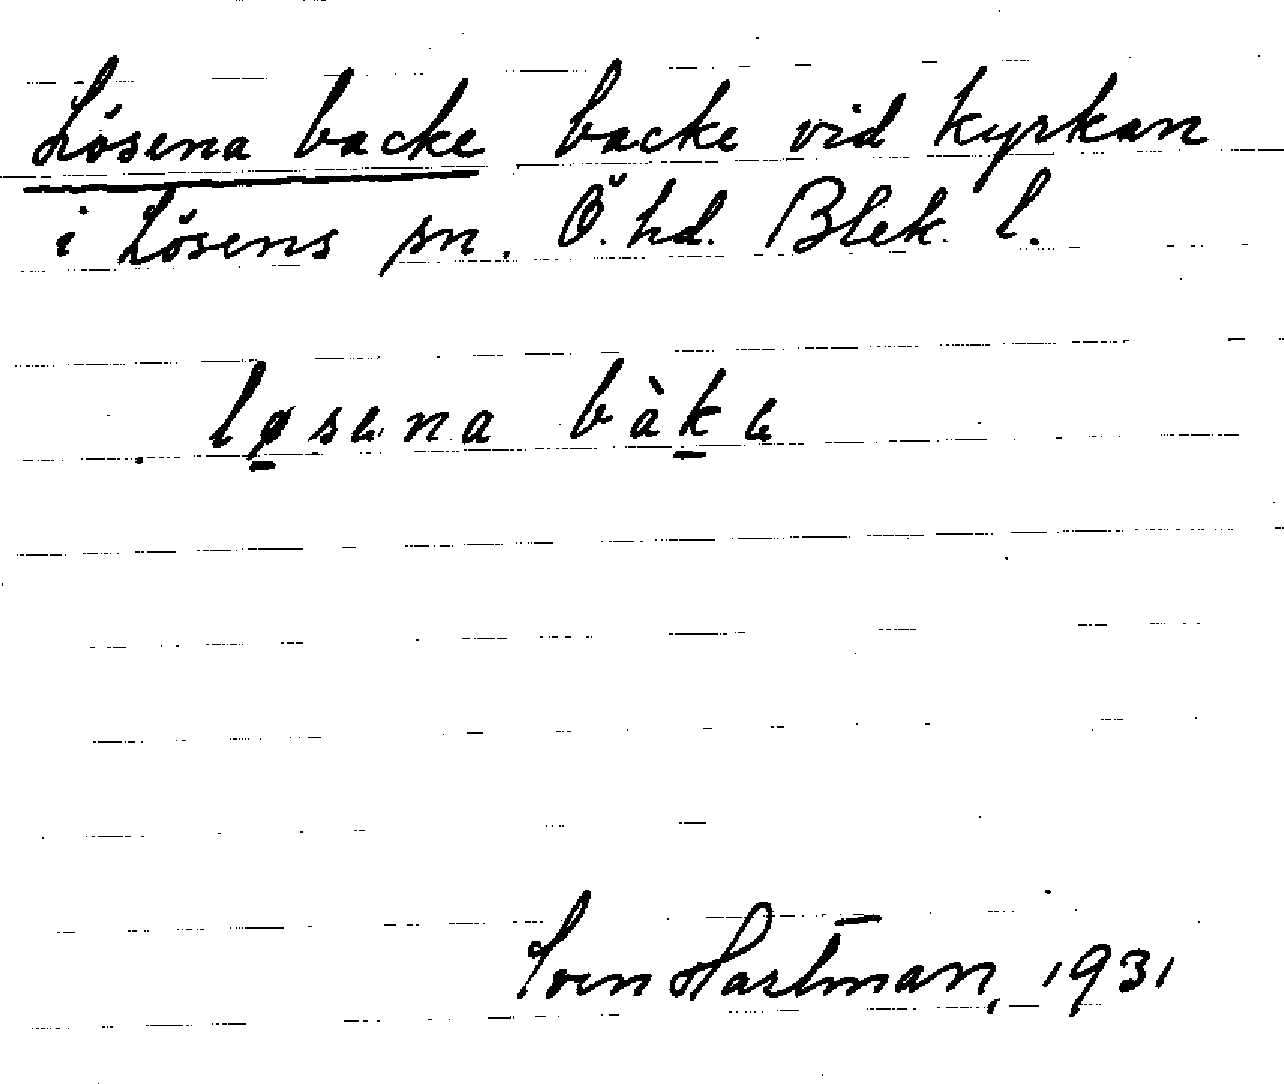 Lösena backe backe vid kyrkan
i Lösens sn. Ö. hd. Blek. l.
lø̱sɐna bàḵɐ
Sven Hartman, 1931